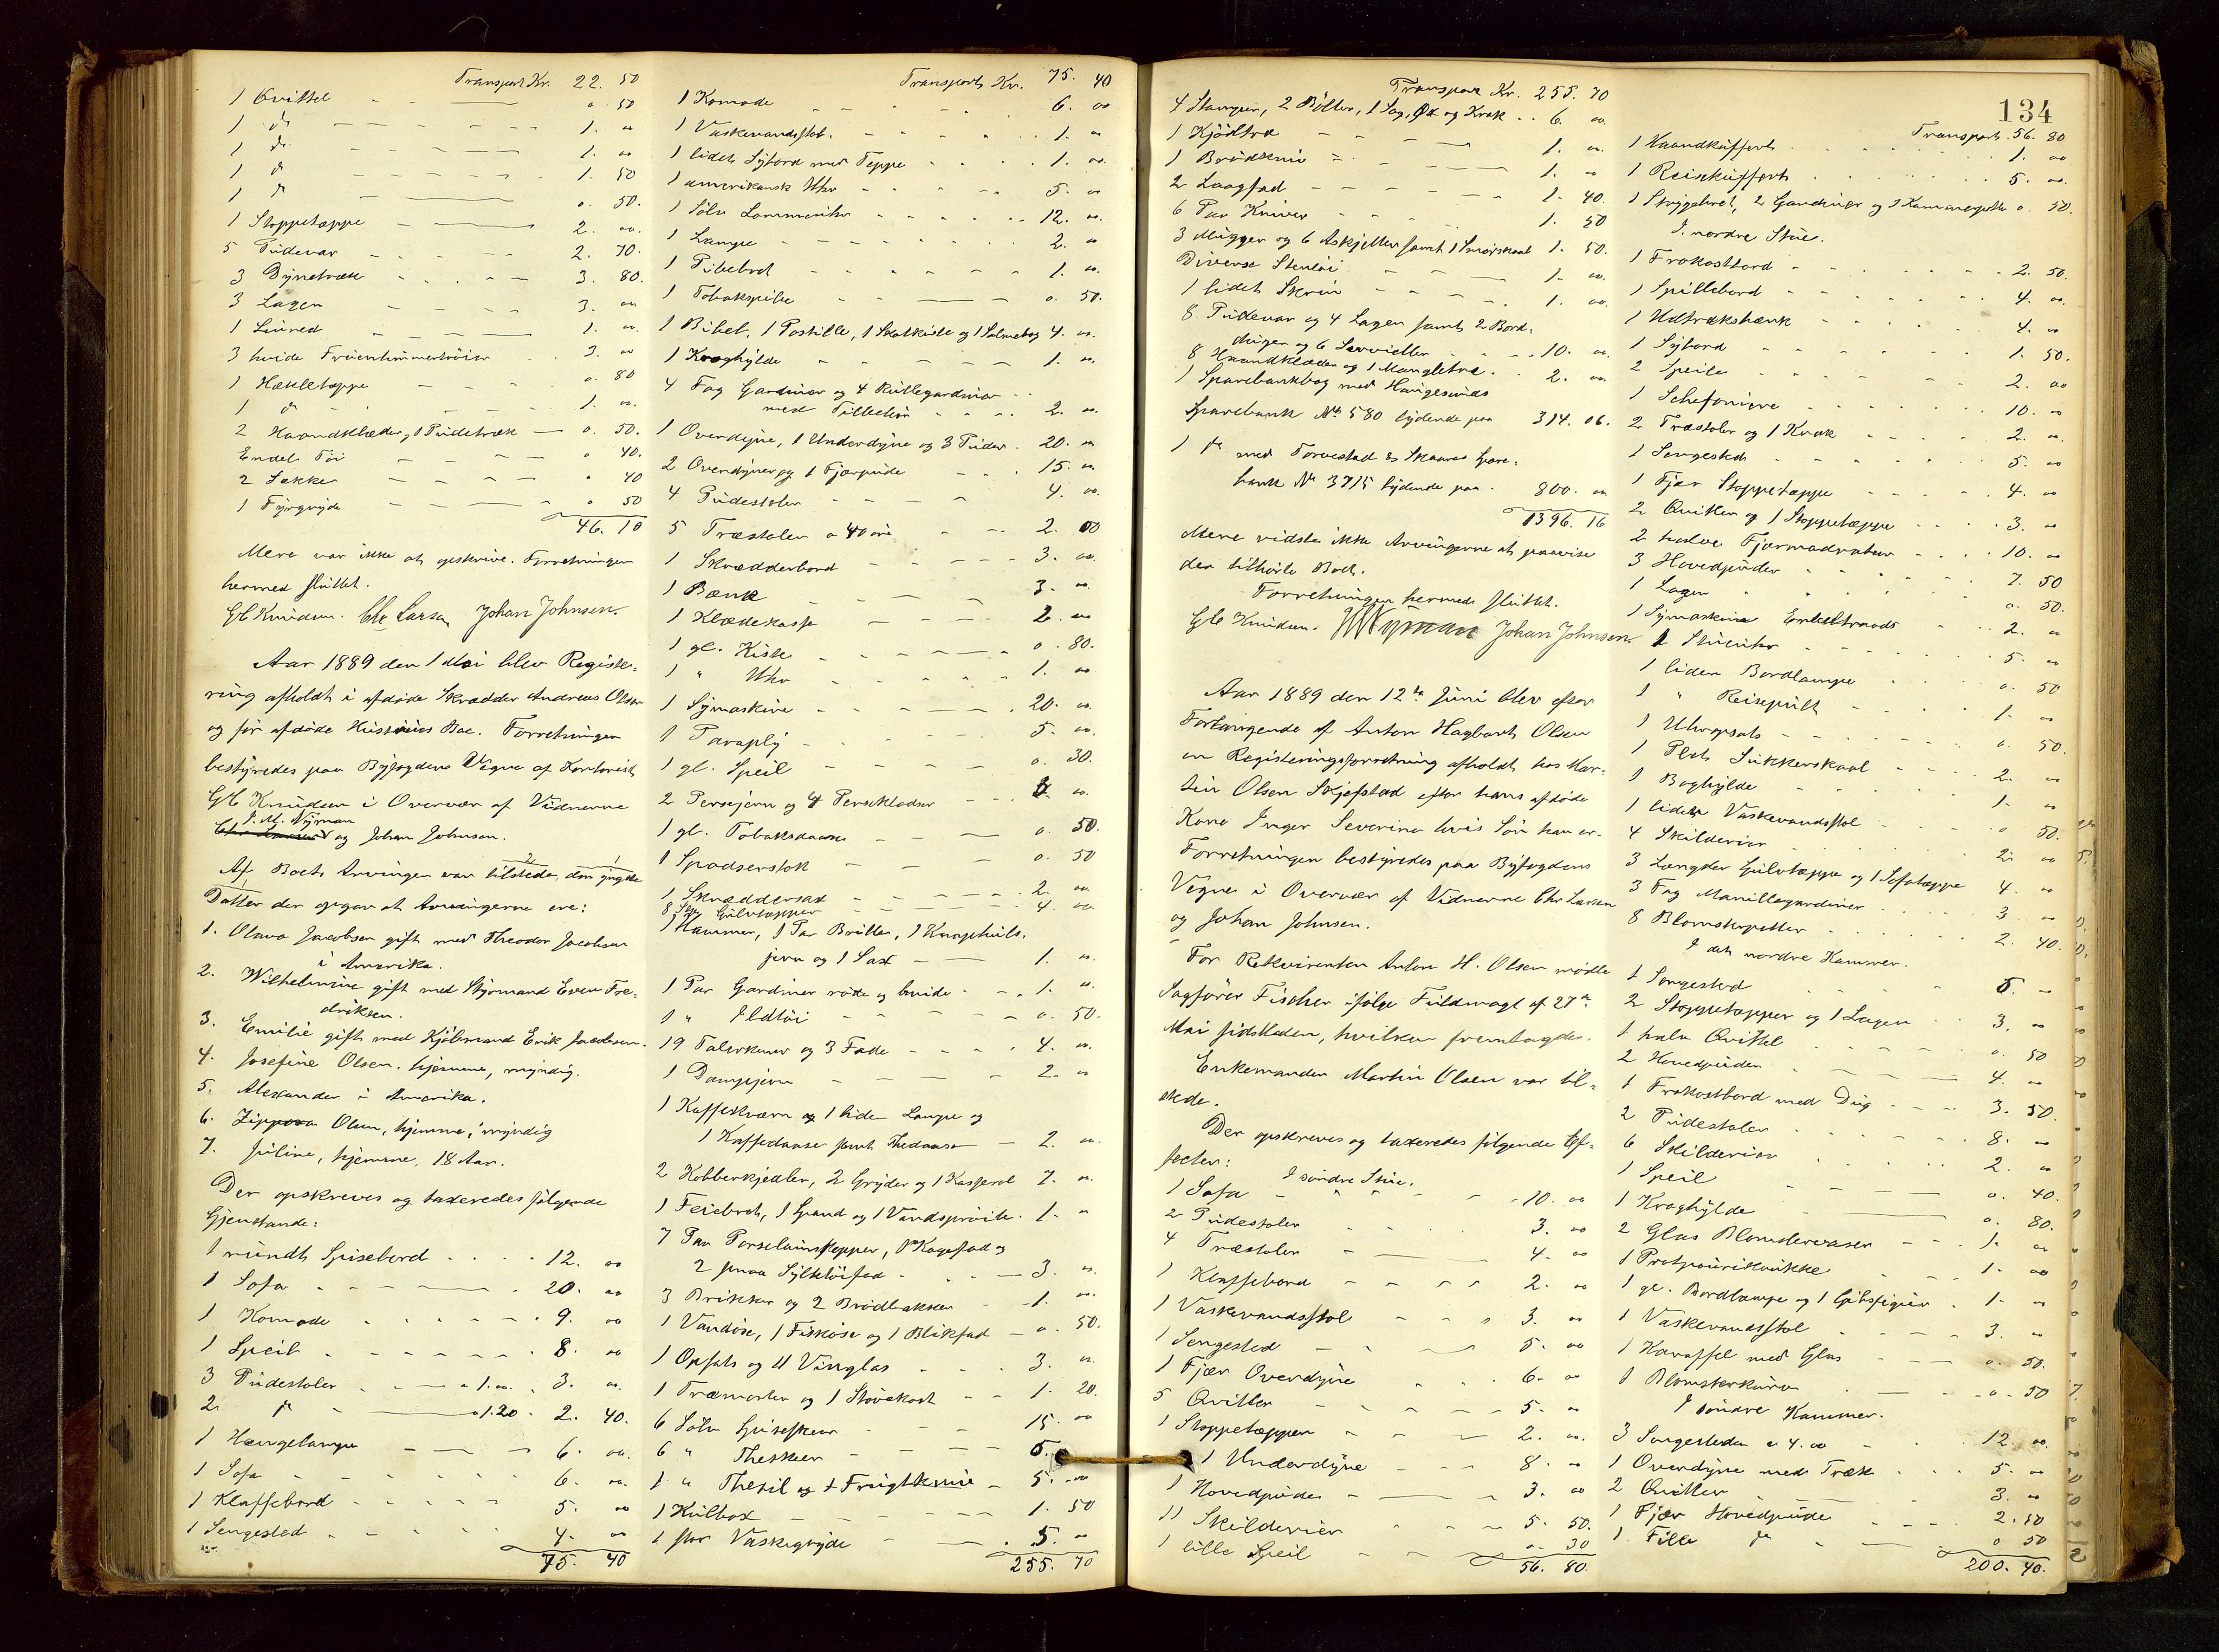 Transport Kr. 22. 50
1 Qvittel - - - 0. 50
1 do - - - 1. 00
1 do - - - 1. 00
1 do - - - 1. 50
1 do - - - 0. 50.
1 Stoppetæppe - - 2. 00.
5 Pudevar - - - 2. 70.
3 Dynetræk - - - 3. 80.
3 Lagen - - - 3. 00
1 Linned - - - 1. 00.
3 hvide Fruentimmertröier - 3. 00
1 Hækletæppe - - 0. 80
1 do - - - 1. 00.
2 Haandklæder, 1 Pudetræk - 0. 50.
Endel Töi - - - 0 40.
2 Sækker - - - 0 40
1 Fyrgryde - - - 0 50
46. 10
Mere var ikke at opskrive. Forretningen
hermed sluttet.
Gb Knudsen. Chr Larsen Johan Johnsen.
Aar 1889 den 1 Mai blev Registe-
ring afholdt i afdøde Skrædder Andreas Olsen
og før afdøde Hustrues Boe. Forretningen
bestyredes paa Byfogdens Vegne af Kontorist
Gb Knudsen i Overvær af Vidnerne
J. M. Nyman
Chr Larsen og Johan Johnsen.
Af Boets Arvinger var tilstede den yngste
Datter der opgav at Arvingerne ere:
1. Olava Jacobsen gift med Theodor Jacobsen
i Amerika.
2. Wilhelmine gift med Styrmand Even Fre-
driksen.
3. Emilie gift med Kjøbmand Erik Jacobsen.
4. Josefine Olsen, hjemme, myndig.
5. Alexander i Amerika.
6. Zippora Olsen, hjemme, myndig
7. Juline, hjemme, 18 Aar.
Der opskreves og taxeredes følgende
Gjenstande:
1 rundt Spisebord - - 12. 00
1 Sofa - - - 20. 00
1 Komode - - - 9. 00
1 Speil - - - 8. 00
3 Pudestoler - - a 1.00. 3. 00.
2 do - - a 1.20 - 2. 40.
1 Hængelampe - - 6. 00.
1 Sofa - - - 6. 00.
1 Klaffebord - - - 5. 00
1 Sengested - - - 4. 00
75. 40
Transport Kr. 75. 40
1 Komode - - - 6. 00
1 Vaskevandsstol - - - 1. 00
1 lidet Sybord med Teppe - - 1. 00.
1 amerikansk Uhr - - - 5. 00
1 Sölv Lommeuhr - - - 12. 00.
1 Lampe - - - 2. 00
1 Pibebret - - - 1. 00.
1 Tobakspibe - - - 0. 50.
1 Bibel, 1 Postille, 1 Skatkiste og 1 Salmebog 4. 00.
1 Kroghylde - - - 1. 00.
4 Fag Gardiner og 4 Rullegardiner
med Tilbehör - - - 2. 00.
1 Overdyne, 1 Underdyne og 3 Puder - 20. 00
2 Overdyner og 1 Fjærpude - - 15. 00
4 Pudestoler - - - 4. 00.
5 Træstoler a 40 øre - - 2. 00
1 Skrædderbord - - - 3. 00.
1 Bænk - - - 3. 00
1 Klædekasse - - - 2. 00
1 gl. Kiste - - - 0. 80.
1 " Uhr - - - 1. 00
1 Symaskine - - - 20. 00.
1 Paraply - - - 5. 00.
1 gl. Speil - - - 0. 30.
2 Persejern og 4 Perseklodser - 00.
1 gl. Tobaksdaase - - 0. 50.
1 Spadserstok - - - 0. 50
1 Skræddersax - - - 2. 00.
8 Gulvtæpper - - - 4. 00.
1 Hammer, 1 Par Briller, 1 Knaphuls-
jern og 1 Sax - - 1. 00.
1 Par Gardiner röde og hvide - - 1. 00.
1 " Ildtöi - - - 0. 50.
19 Talerkener og 3 Fade - - 4. 00.
1 Dampjern - - - 2. 00
1 Kaffekværn og 1 liden Lampe og
1 Kaffedaase samt Thedaase - 2. 00.
2 Kobberkjedler, 2 Gryder og 1 Kasserol 7. 00.
1 Feiebret, 1 Spand og 1 Vandspröite. 1. 00
7 Par Porselainskopper, 1 Kagefad og
2 smaa Syltetöifad - - - 3. 00.
3 Brikker og 2 Brödbakker - - 1. 00.
1 Vandöse, 1 Fisköse og 1 Blikfad - 0. 50.
1 Opsats og 11 Vinglas - - 3. 00.
1 Træmorter og 1 Stövekost - - 1. 20.
6 Sölv Spiseskeer - - 15. 00
6 " Theskeer - - - 5.
1 " Thesil og 1 Frugtkniv - 5. 00
1 Kulbox - - - 1. 50
1 stor Vaskegryde - - - 5. 00
255. 70
134
Transport Kr. 255. 70
4 Stamper, 2 Bötter, 1 Sag, Öx og Krak - 6. 00.
1 Kjödtræ - - - 1. 00.
1 Brödkniv - - - 1. 00
2 Laagfad - - - 1. 40.
6 Par Kniver - - - 1. 50
3 Mugger og 6 Askjetter samt 1 Smörskaal 1. 50.
Diverse Stentöi - - 1. 00.
1 lidet Skrin - - - 1. 00
8 Pudevar og 4 Lagen samt 2 Bord-
duger og 6 Servietter - - 10. 00.
8 Haandklæder og 1 Mangletræ - 2. 00.
1 Sparebankbog med Haugesunds
Sparebank No 580 lydende paa 314. 06.
1 do med Torvestad & Skaares Spare-
bank No 3715 lydende paa - 800. 00
1396. 16
Mere vidste ikke Arvingerne at paavise
der tilhörte Boet.
Forretningen hermed sluttet.
Gb Knudsen. JMNyman Johan Johnsen
Aar 1889 den 12te Juni blev efter
Forlangende af Anton Hagbart Olsen
en Registeringsforretning afholdt hos Mar-
tin Olsen Skjefstad efter hans afdøde
Kone Inger Severine hvis Sön han er.
Forretningen bestyredes paa Byfogdens
Vegne i Overvær af Vidnerne Chr Larsen
og Johan Johnsen.
For Rekvirenten Anton H. Olsen mödte
Sagförer Fischer ifølge Fuldmagt af 27de
Mai sidstleden, hvilken fremlagdes.
Enkemanden Martin Olsen var til-
stede.
Der opskreves og taxeredes følgende Ef-
fecter:
I söndre Stue.
1 Sofa - - - 10. 00
2 Pudestoler - - - 3. 00
4 Træstoler - - - 4. 00
1 Klaffebord - - - 2. 00
1 Vaskevandsstol - - - 3. 00
1 Sengested - - - 5. 00
1 Fjær Overdyne - - 6. 00
5 Qvitler - - - 5. 00
1 Stoppetæppe - - - 2. 00.
1 Underdyne - - - 8. 00
1 Hovedpude - - - 3. 00
11 Skilderier - - - 5. 50.
1 lille Speil - - - 0. 30
56. 80.
Transport. 56. 80
1 Haandkuffert - - - 1. 00
1 Reisekuffert - - - 5. 00.
1 Strygebret, 2 Gardiner og 1 Kammerpotte 0. 50.
I nordre Stue.
1 Frokostbord - - - 2. 50.
1 Spillebord - - - 4. 00.
1 Udtræksbænk - - - 4. 00
1 Sybord - - - 1. 50.
2 Speile - - - 2. 00
1 Schefoniere - - - 10. 00
2 Træstoler og 1 Krak - - - 2. 00.
1 Sengested - - - 5. 00
1 Fjær Stoppetæppe - - - 4. 00
2 Qvitler og 1 Stoppetæppe - - - 3. 00
2 halve Fjærmadratser - - - 10. 00
3 Hovedpuder - - - 7. 50
1 Lagen - - - 0. 50.
1 Symaskine Enkelttraads - - 2. 00
1 Stueuhr - - - 5. 00
1 liden Bordlampe - - - 0. 50
1 " Reisepult - - - 1. 00
1 Uhropsats - - - 0. 50.
1 Plet Sukkerskaal - - - 2. 00
1 Boghylde - - - 1. 00
1 lidet Vaskevandsstol - - 0 50.
4 Skilderier - - - 2. 00
3 Længder Gulvtæppe og 1 Sofatæppe 4. 00
3 Fag Manillagardiner - - - 3. 00
8 Blomsterpotter - - - 2. 40.
I det nordre Kammer.
1 Sengested - - - 5. 00
2 Stoppetæpper og 1 Lagen - - 3. 00
1 halv Qvittel - - - 0. 50
2 Hovedpuder - - - 4. 00
1 Frokostbord med Dug - - - 3. 50
2 Pudestoler - - - 8. 00
6 Skilderier - - - 2. 00
1 Speil - - - 0. 40.
1 Kroghylde - - - 0. 80.
2 Glas Blomstervaser - - 1. 00
1 Potpourikrukke - - - 1. 00
1 gl. Bordlampe og 1 Gibsfigur - 1. 00
1 Vaskevandsstol - - - 3. 00
1 Karaffel med Glas - - 0. 50.
1 Blomsterkurv - - - 0. 50
I söndre Kammer.
3 Sengesteder a 4.00 - - 12 00.
1 Overdyne med Træk - - - 5. 00
2 Qvitler - - - 3. 00
1 Fjær Hovedpude - - - 2. 50
1 Fille do - - - 0 50
200. 40.